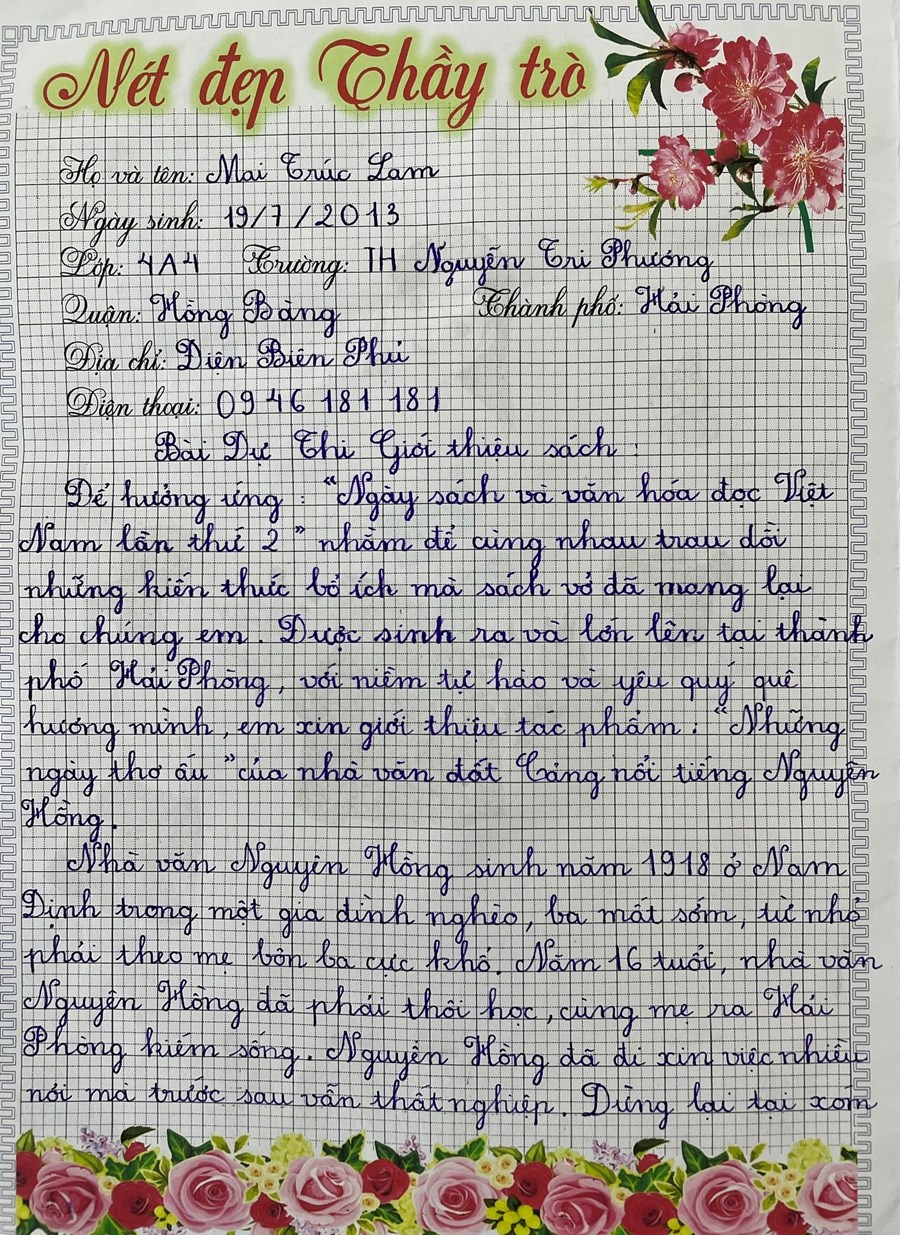 Nét đẹp Thầy trò
Họ và tên: Mai Trúc Lam
Ngày sinh: 19/7/2013
Lớp: 4A4 Trường: TH Nguyễn Tri Phương
Quận: Hồng Bàng Thành phố: Hải Phòng
Địa chỉ: Điện Biên Phủ
Điện thoại: 0946 181 181
Bài Dự Thi Giới thiệu sách:
Để hưởng ứng: "Ngày sách và văn hóa đọc Việt
Nam lần thứ 2" nhằm để cùng nhau trau dồi
những kiến thức bổ ích mà sách vở đã mang lại
cho chúng em. Được sinh ra và lớn lên tại thành
phố Hải Phòng, với niềm tự hào và yêu quý quê
hương mình, em xin giới thiệu tác phẩm: "Những
ngày thơ ấu" của nhà văn đất Cảng nổi tiếng Nguyên
Hồng.
Nhà văn Nguyên Hồng sinh năm 1918 ở Nam
Định trong một gia đình nghèo, ba mất sớm, từ nhỏ
phải theo mẹ bôn ba cực khổ. Năm 16 tuổi, nhà văn
Nguyên Hồng đã phải thôi học, cùng mẹ ra Hải
Phòng kiếm sống. Nguyên Hồng đã đi xin việc nhiều
nơi mà trước sau vẫn thất nghiệp. Dừng lại tại xóm